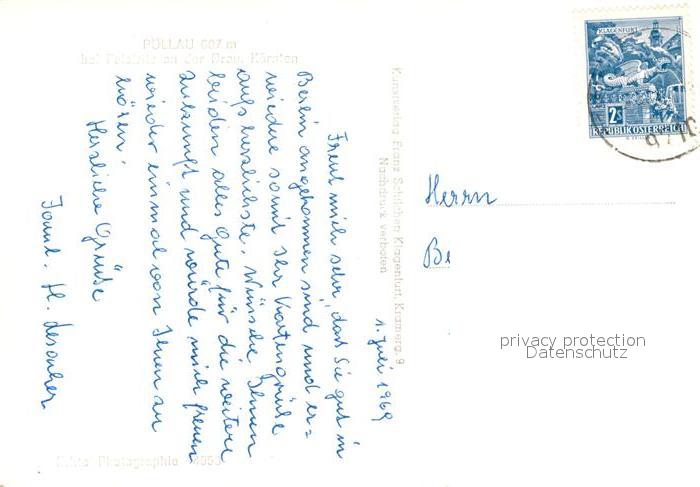 PÖLLAU 607 m
bei Feistritz an der Drau, Kärnten
1. Juli 1969
Freut mich sehr, dass Sie gut in
Berlin angekommen sind und er=
wiedere somit Ihr Kartengrüße
aufs herzlichste. Wünsche Ihnen
beiden alles Gute für die weitere
Zukunft und würde mich freuen
wieder einmal von Ihnen zu
hören.
Herzliche Grüße
Kunstverlag Franz Schilcher, Klagenfurt, Kramerg. 9
Nachdruck verboten
Echte Photographie
KLAGENFURT
2s
REPUBLIK ÖSTERREICH
9710
Herrn
Be
privacy protection
Datenschutz